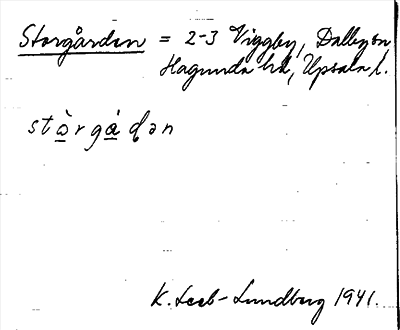 Storgården = 2-3 Viggby, Dalby sn
Hagunda hd, Upsala l.
stò̱rgá̱ɖən
K. Leeb-Lundberg 1941.